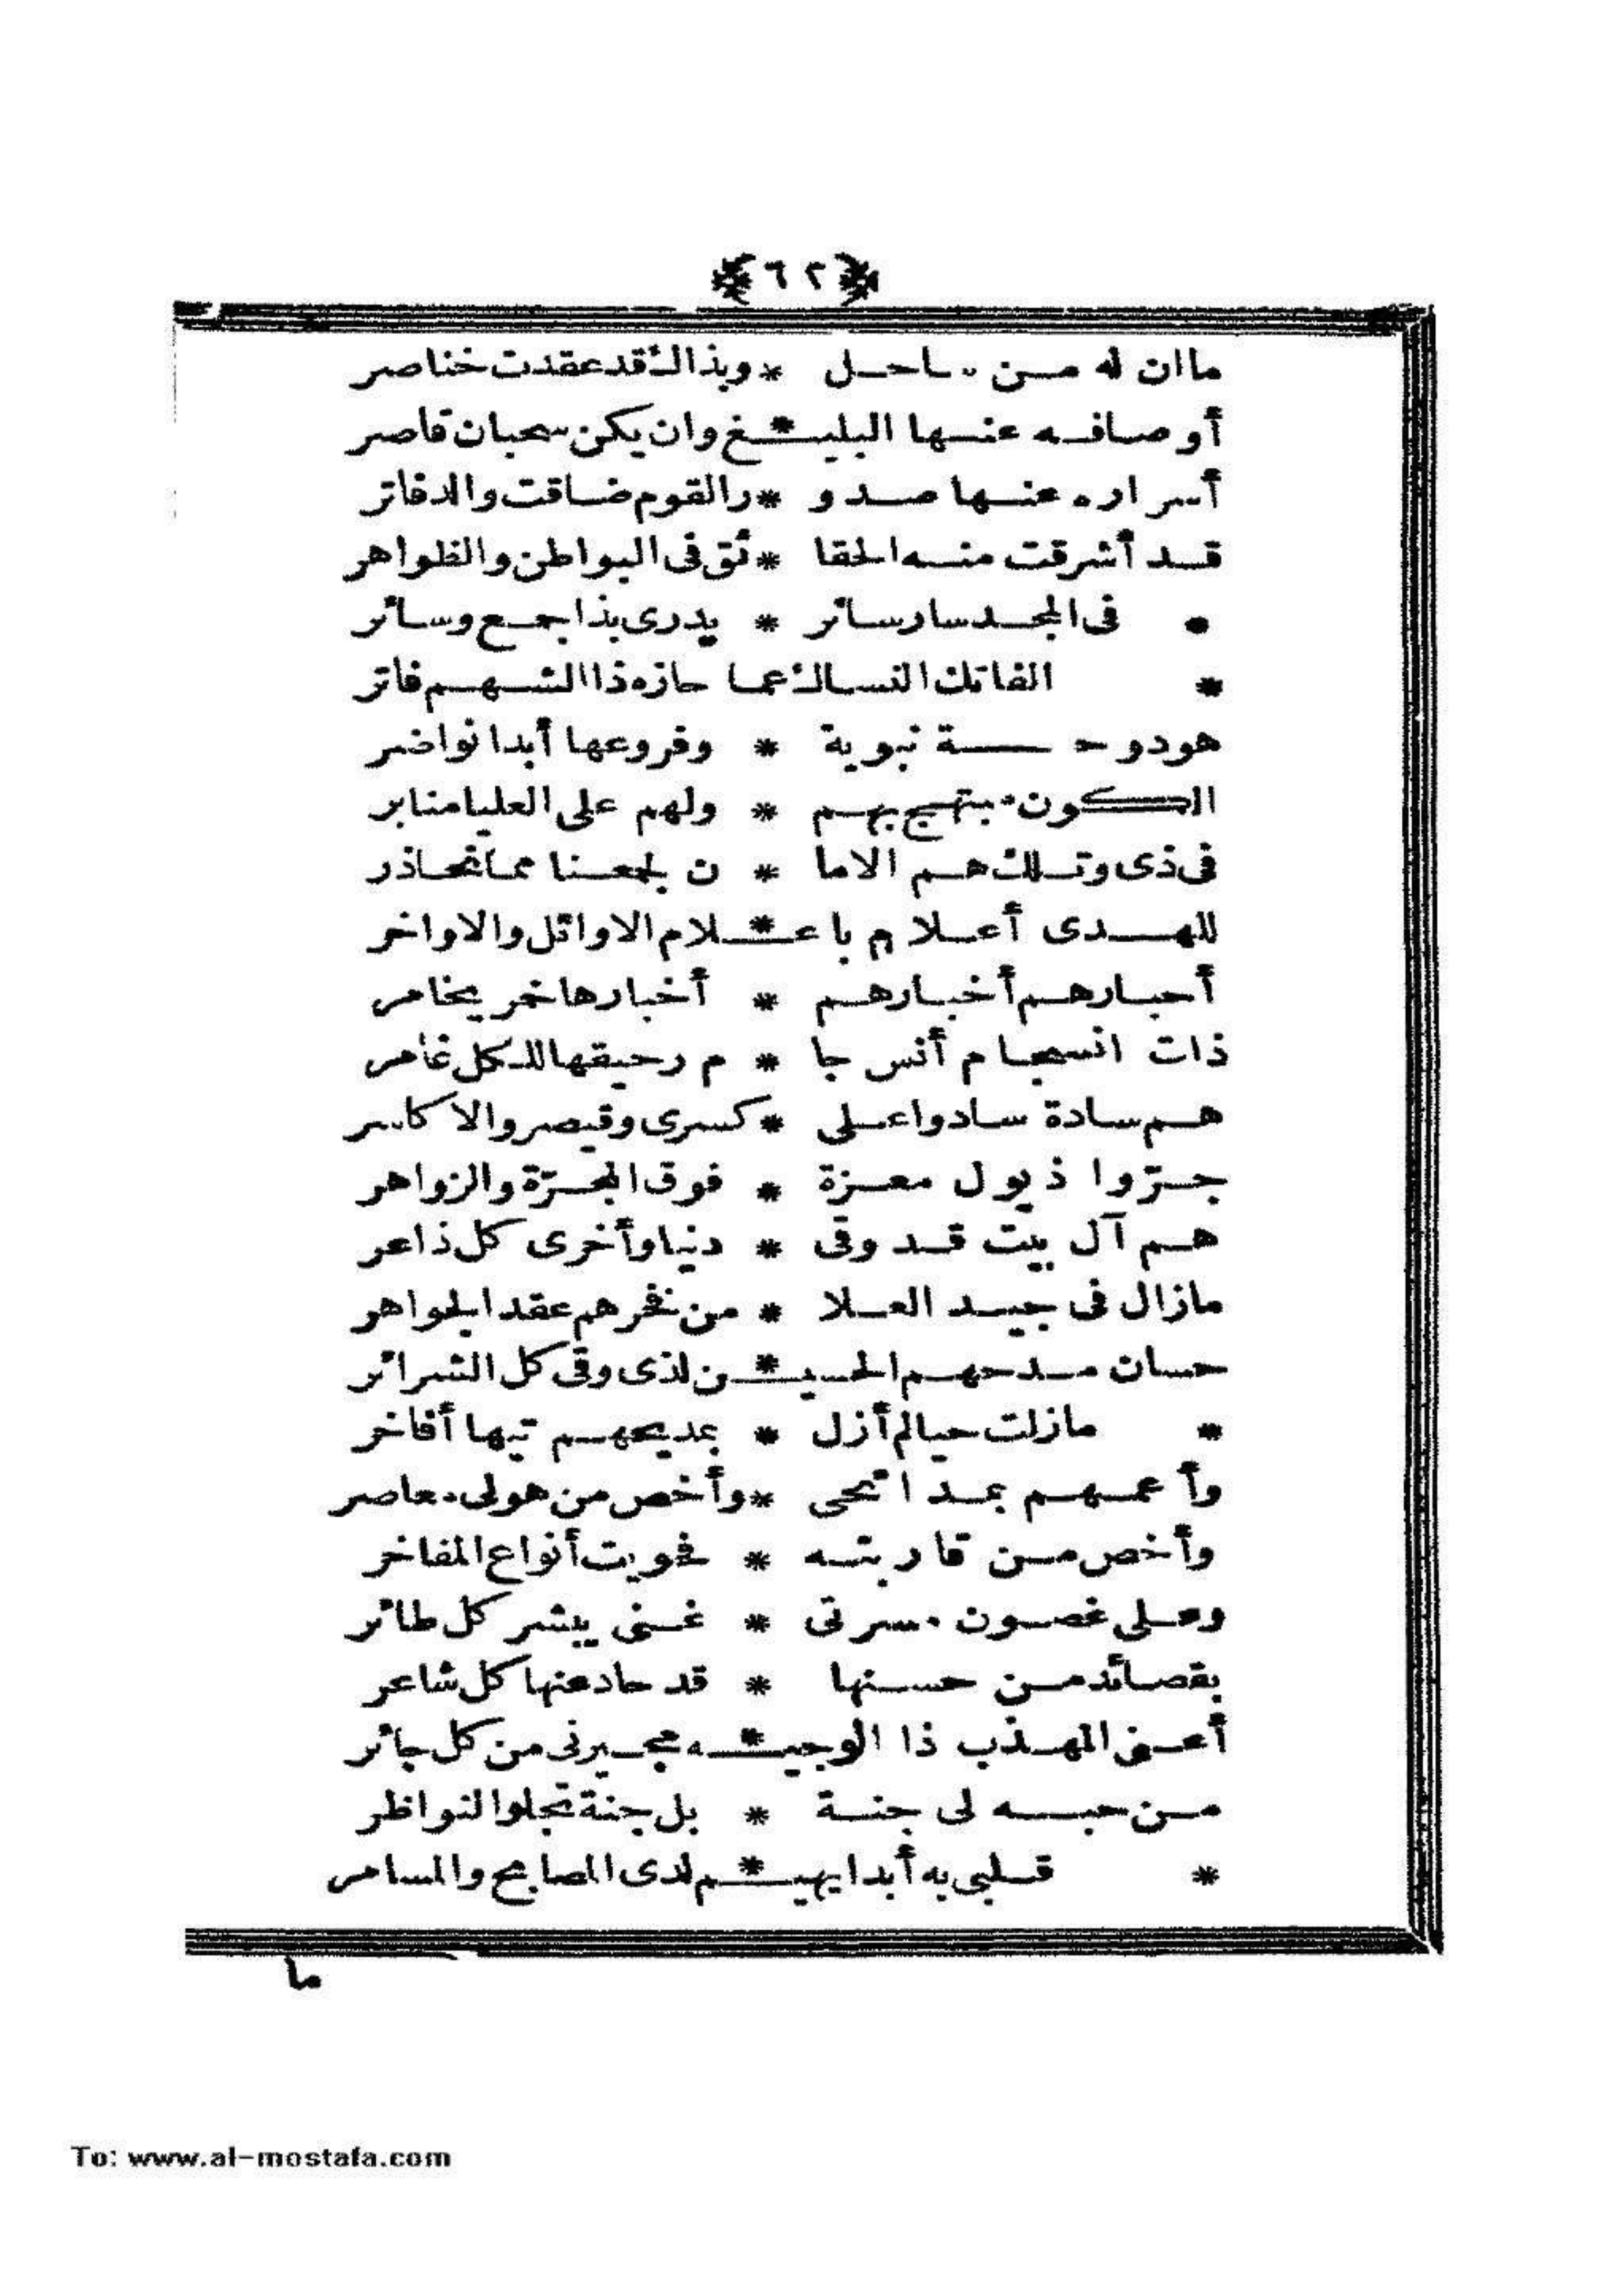 ﴿٦٢﴾
ماان له من ساحل * وبذاك قد عقدت خناصر
أوصافه عنها البليـ * ـغ وان يكن سحبان قاصر
أسراره عنها صدو * ر القوم ضاقت والدفاتر
قد أشرقت منه الحقا * ئق فى البواطن والظواهر
فى المجد سار سائر * يدرى بذا جمع وسائر
* الفاتك النساك عما حازه ذا الشهم فاتر
هو دوحة نبوية * وفروعها أبدا نواضر
الكون مبتهج بهم * ولهم على العليا منابر
فى ذى وتلك هم الاما * ن لجمعنا مما نحاذر
للهدى أعلام باعـ * ـلام الاوائل والاواخر
أحبارهم أخبارهم * أخبارها خمر يخامر
ذات انسجام أنس جا * م رحيقها للكل غامر
هم سادة سادوا على * كسرى وقيصر والاكاسر
جرّوا ذيول معزة * فوق المجرّة والزواهر
هم آل بيت قد وقى * دنيا وأخرى كل ذاعر
مازال فى جيد العلا * من فخرهم عقد الجواهر
حسان مدحهم الحسيـ * ـن لذى وقى كل الشرائر
* مازلت حيا لم أزل * بمديحهم تيها أفاخر
وأعمهم بمدائحى * وأخص من هو لى معاصر
وأخص من قاربته * فحويت أنواع المفاخر
وعلى غصون مسرتى * غنى ببشر كل طائر
بقصائد من حسنها * قد حاد عنها كل شاعر
أعنى المهذب ذا الوجيـ * ـه مجيرنى من كل جائر
من حبه لى جنة * بل جنة تجلو النواظر
* قلبى به أبدا يهيـ * ـم لدى المصابح والمسامر
ما
To: www.al-mostafa.com